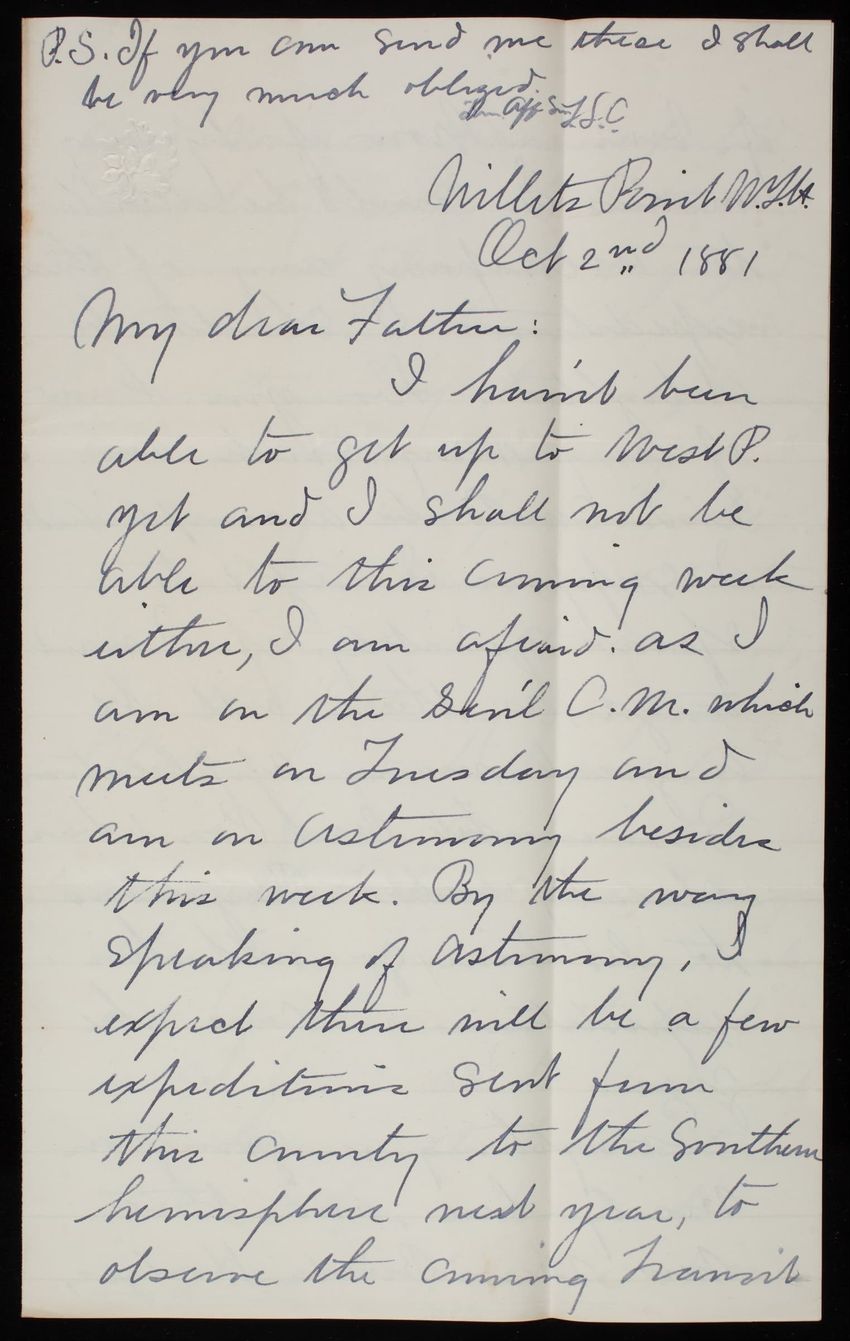 P.S. If you can send me these I shall
be very much obliged.
Your Aff Son T.L.C
Willets Point N.Y.H.
Oct 2nd 1881
My dear Father:
I haven't been
able to get up to West P.
yet and I shall not be
able to this coming week
either, I am afraid. as I
am on the Gen'l C.M. which
meets on Tuesday and
am on Astronomy besides
this week. By the way
speaking of Astronomy, I
expect there will be a few
expeditions sent from
this country to the Southern
hemisphere next year, to
observe the coming transit